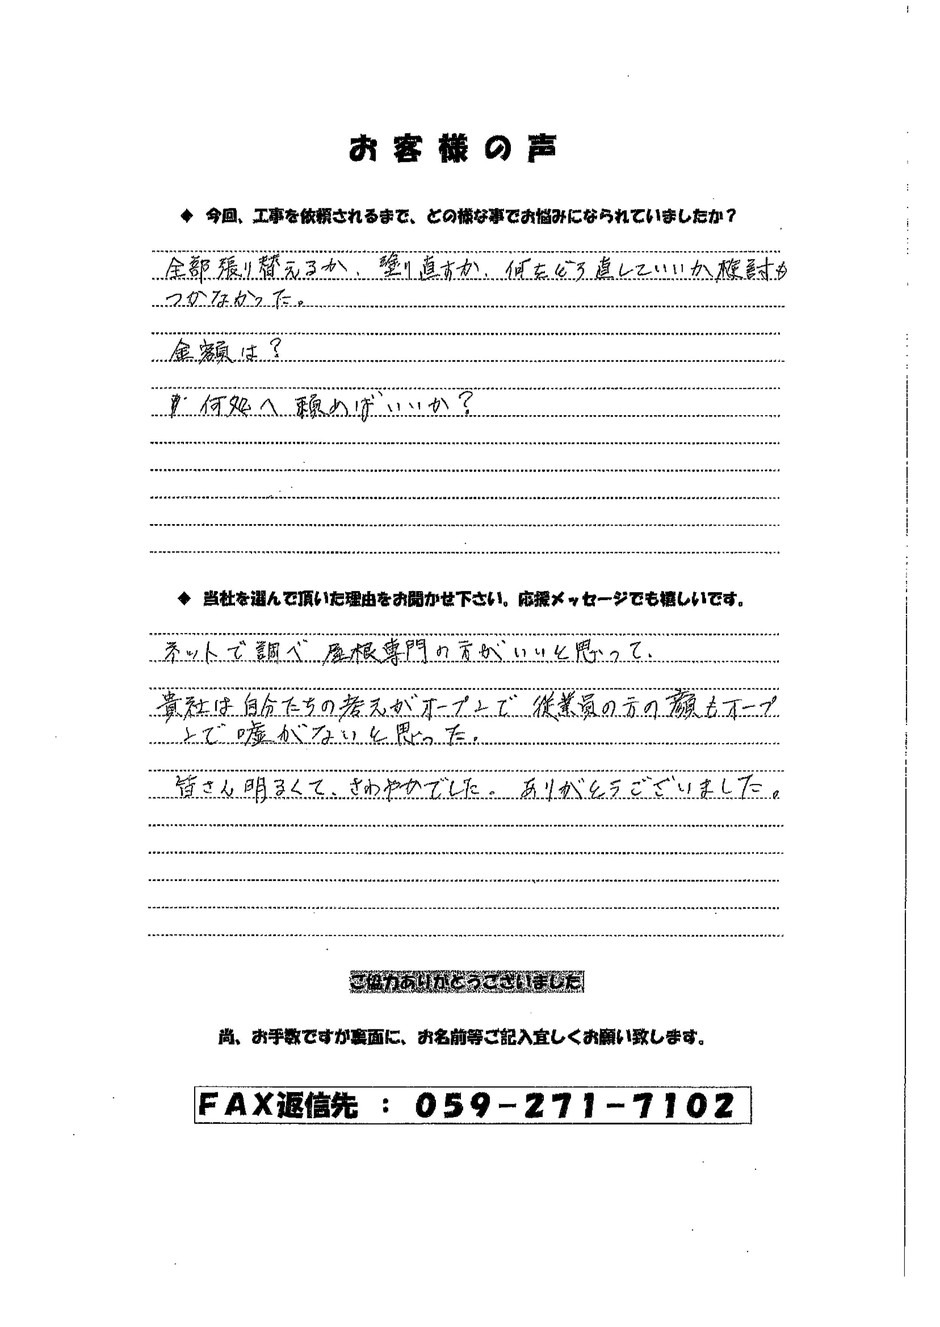 お客様の声
◆ 今回、工事を依頼されるまで、どの様な事でお悩みになられていましたか？
全部張り替えるか、塗り直すか、何をどう直していいか検討も
つかなかった。
金額は？
何処へ頼めばいいか？
◆ 当社を選んで頂いた理由をお聞かせ下さい。応援メッセージでも嬉しいです。
ネットで調べ屋根専門の方がいいと思って、
貴社は自分たちの考えがオープンで従業員の方の顔もオープ
ンで嘘がないと思った。
皆さん明るくて、さわやかでした。ありがとうございました。
ご協力ありがとうございました
尚、お手数ですが裏面に、お名前等ご記入宜しくお願い致します。
FAX返信先 ： 059-271-7102